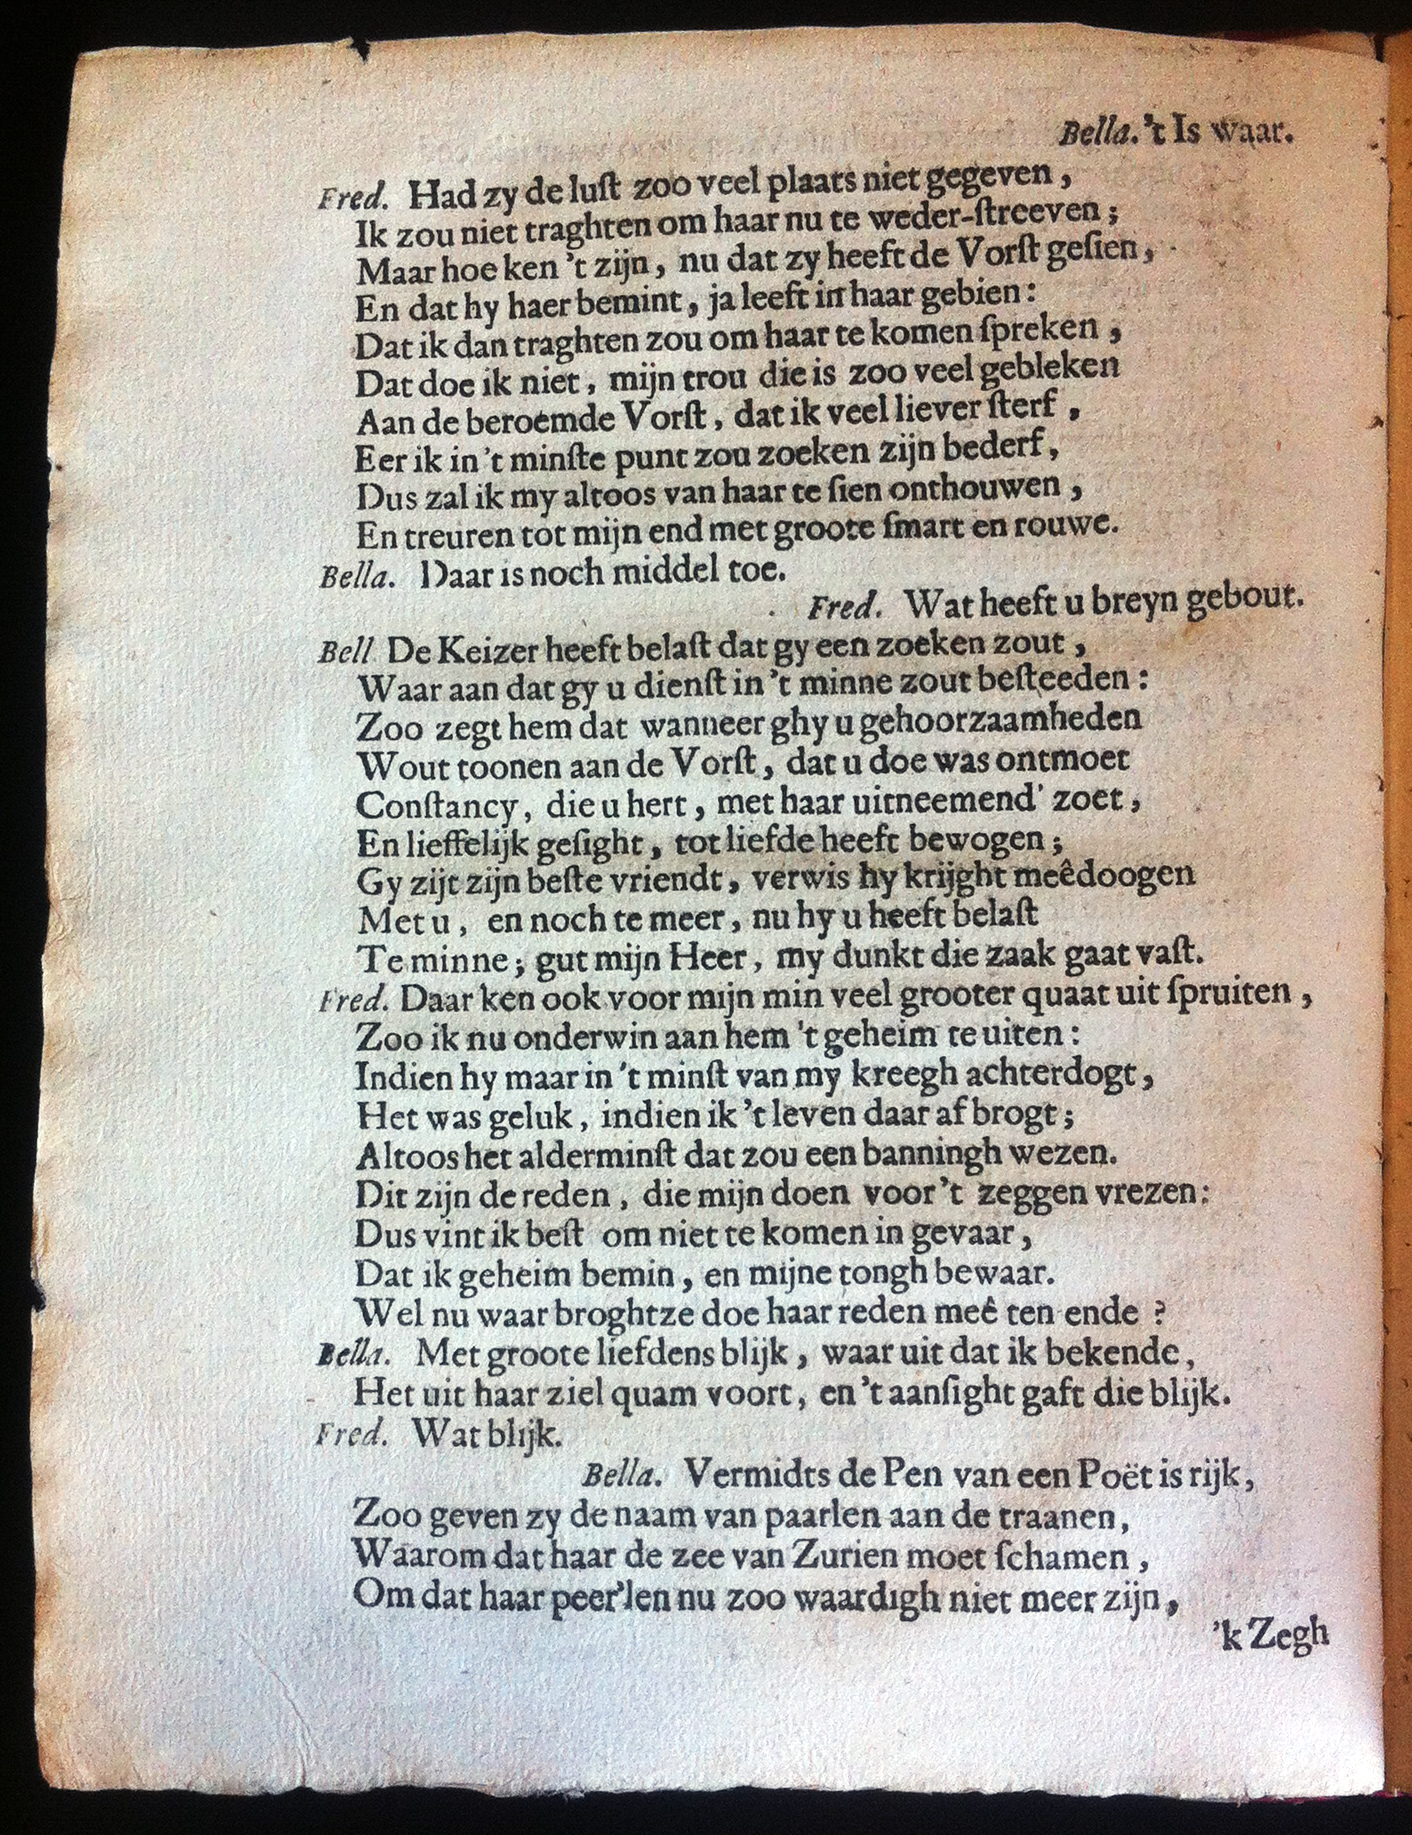 Bella. 't Is waar.
Fred. Had zy de luſt zoo veel plaats niet gegeven ,
Ik zou niet traghten om haar nu te weder-ſtreeven ;
Maar hoe ken 't zijn , nu dat zy heeft de Vorſt geſien ,
En dat hy haer bemint , ja leeft in haar gebien :
Dat ik dan traghten zou om haar te komen ſpreken ,
Dat doe ik niet , mijn trou die is zoo veel gebleken
Aan de beroemde Vorſt , dat ik veel liever ſterf ,
Eer ik in 't minſte punt zou zoeken zijn bederf ,
Dus zal ik my altoos van haar te ſien onthouwen ,
En treuren tot mijn end met groote ſmart en rouwe.
Bella. Daar is noch middel toe.
Fred. Wat heeft u breyn gebout.
Bell De Keizer heeft belaſt dat gy een zoeken zout ,
Waar aan dat gy u dienſt in 't minne zout beſteeden :
Zoo zegt hem dat wanneer ghy u gehoorzaamheden
Wout toonen aan de Vorſt , dat u doe was ontmoet
Conſtancy , die u hert , met haar uitneemend' zoet ,
En lieffelijk geſight , tot liefde heeft bewogen ;
Gy zijt zijn beſte vriendt , verwis hy krijght meêdoogen
Met u , en noch te meer , nu hy u heeft belaſt
Te minne ; gut mijn Heer , my dunkt die zaak gaat vaſt.
Fred. Daar ken ook voor mijn min veel grooter quaat uit ſpruiten ,
Zoo ik nu onderwin aan hem 't geheim te uiten :
Indien hy maar in 't minſt van my kreegh achterdogt ,
Het was geluk , indien ik 't leven daar af brogt ;
Altoos het alderminſt dat zou een banningh wezen.
Dit zijn de reden , die mijn doen voor 't zeggen vrezen :
Dus vint ik beſt om niet te komen in gevaar ,
Dat ik geheim bemin , en mijne tongh bewaar.
Wel nu waar broghtze doe haar reden meê ten ende ?
Bella. Met groote liefdens blijk , waar uit dat ik bekende ,
Het uit haar ziel quam voort , en 't aanſight gaft die blijk.
Fred. Wat blijk.
Bella. Vermidts de Pen van een Poët is rijk ,
Zoo geven zy de naam van paarlen aan de traanen ,
Waarom dat haar de zee van Zurien moet ſchamen ,
Om dat haar peer'len nu zoo waardigh niet meer zijn ,
'k Zegh